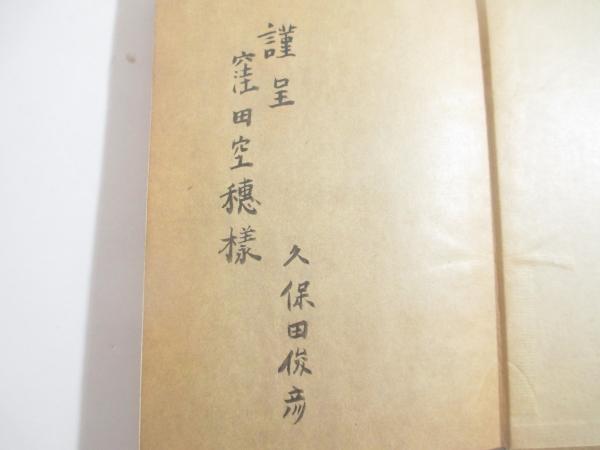 謹呈
窪田空穗樣
久保田俊彦